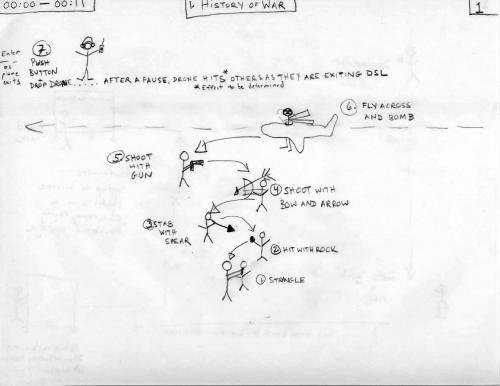 00:00 — 00:11
1. HISTORY OF WAR
1
Enter
as
plane
exits
7.
PUSH
BUTTON
DROP DRONE..... AFTER A PAUSE, DRONE HITS* OTHERS AS THEY ARE EXITING DSL
* Effect to be determined
6. FLY ACROSS
AND BOMB
5. SHOOT
WITH
GUN
4 SHOOT WITH
BOW AND ARROW
3 STAB
WITH
SPEAR
2 HIT WITH ROCK
1 STRANGLE